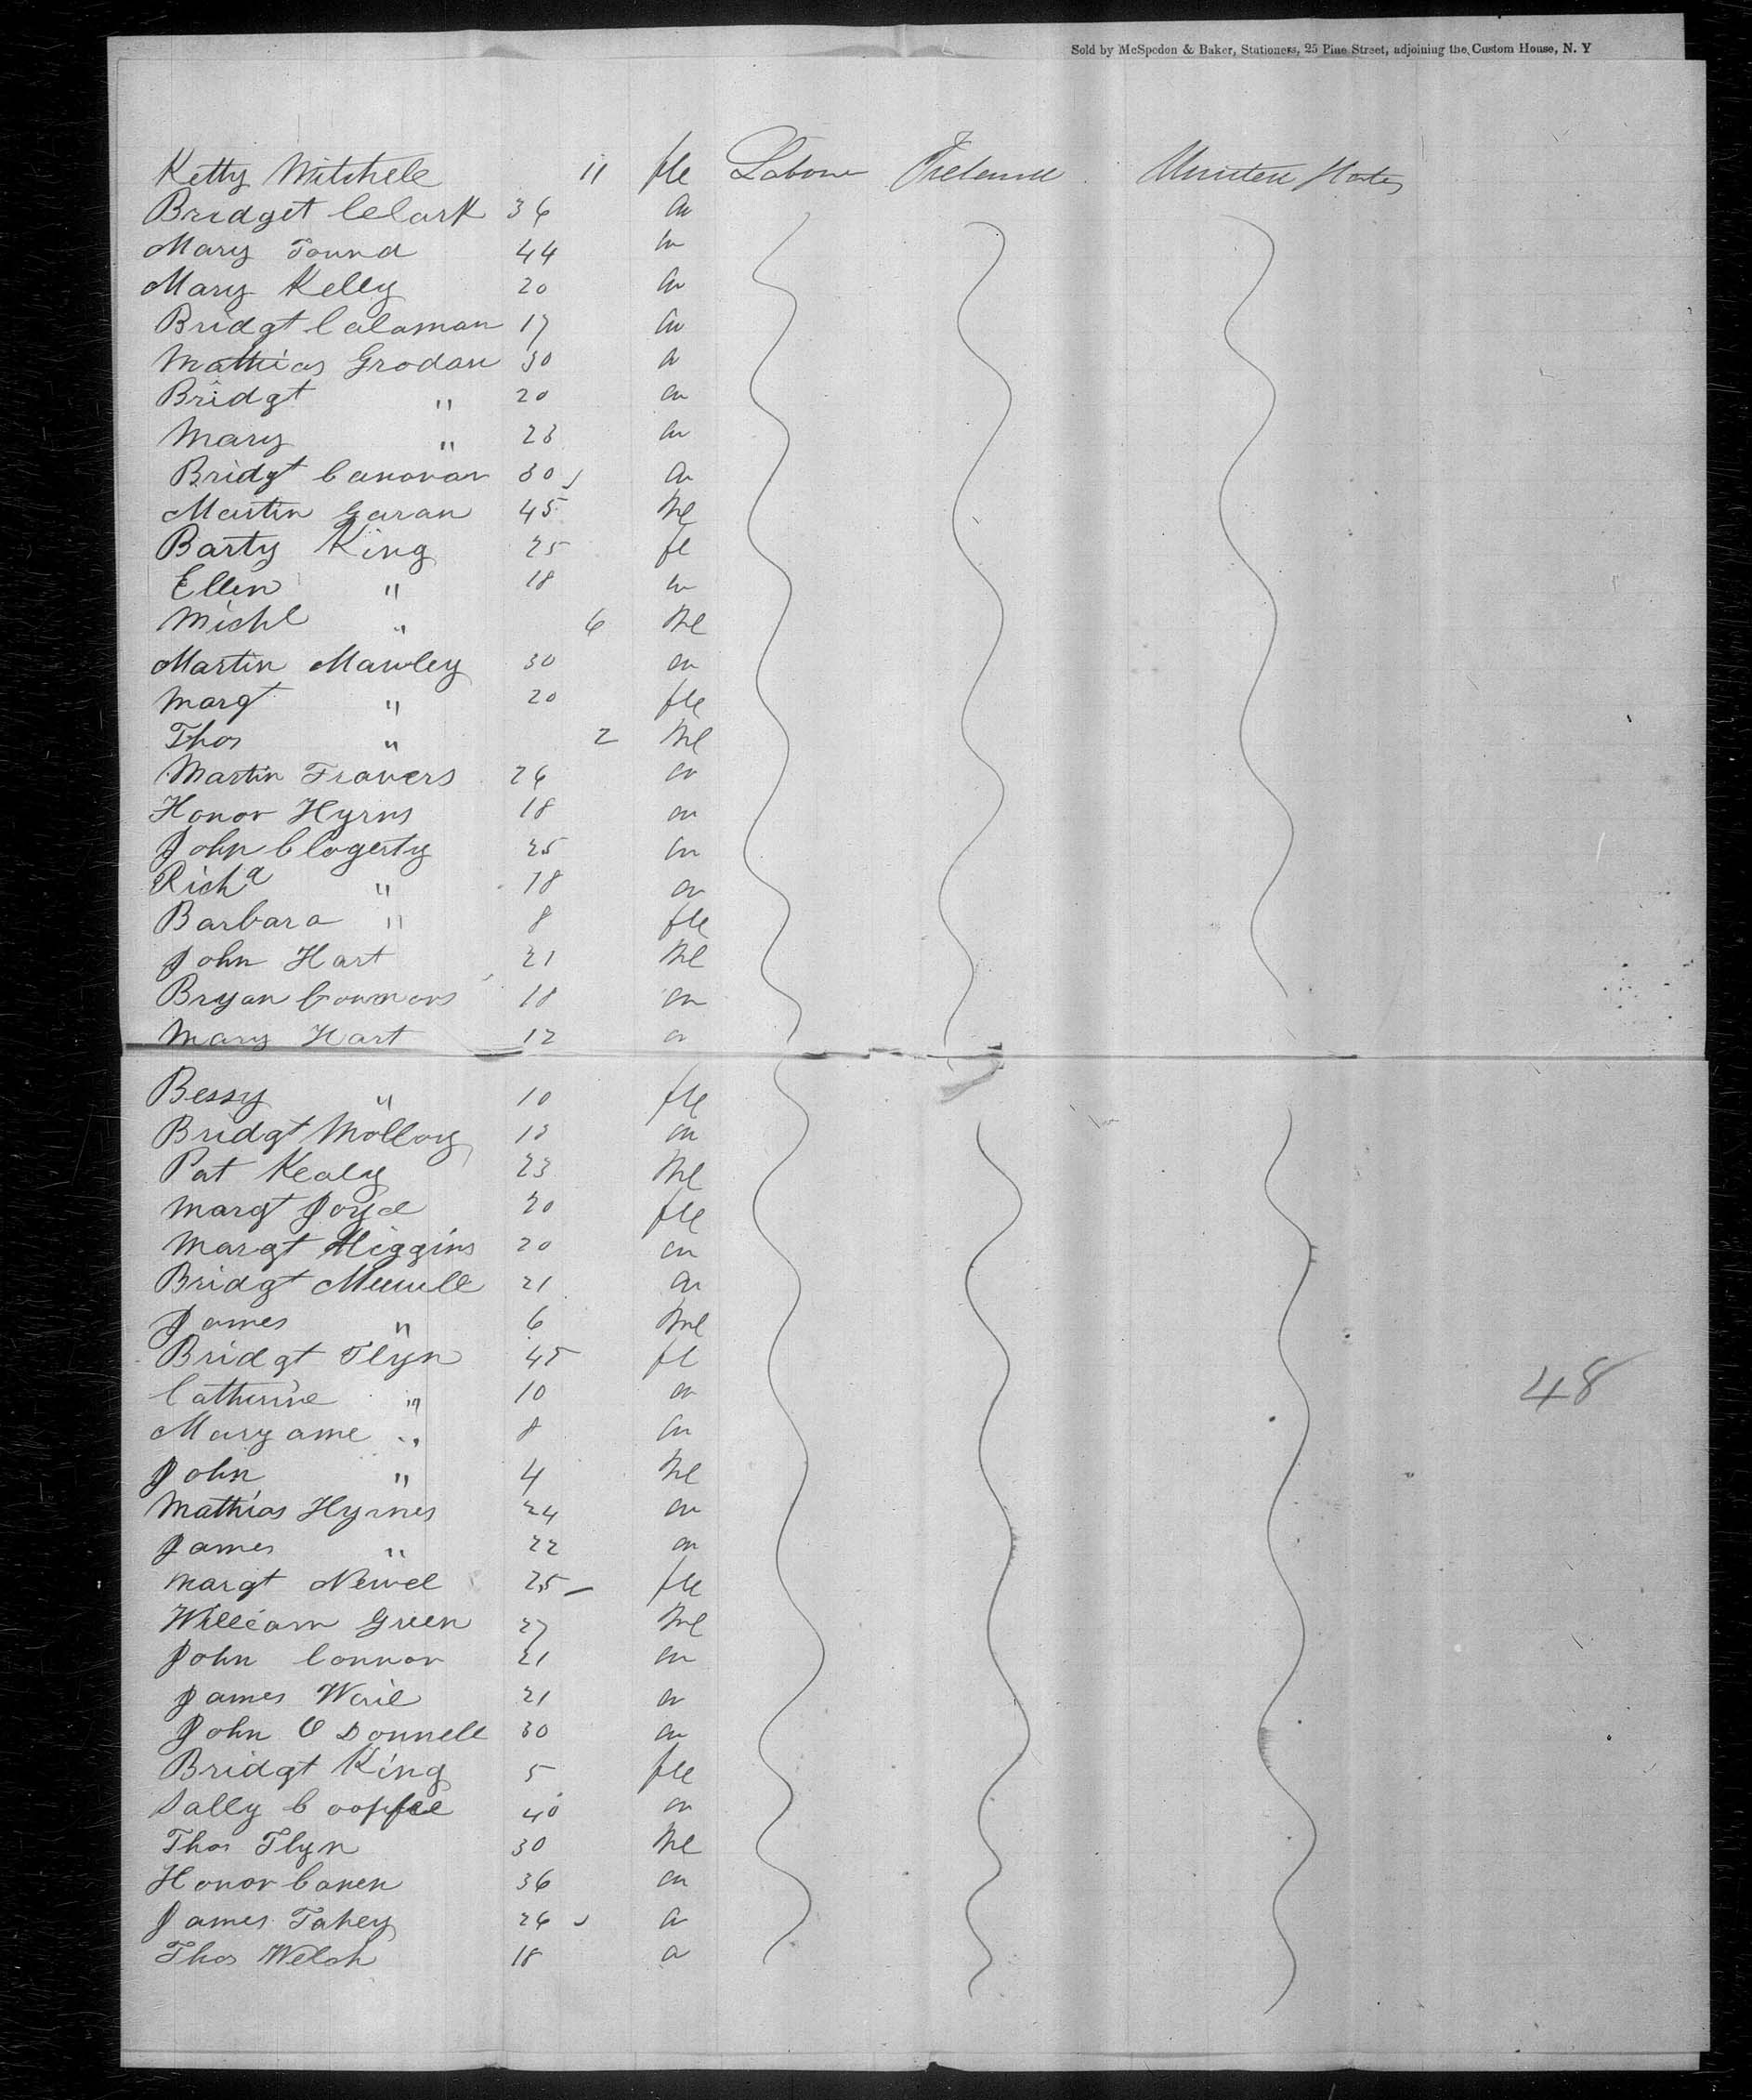 Sold by McSpedon & Baker, Stationers, 25 Pine Street, adjoining the Custom House, N. Y
Ketty Mitchele 11 fle Labour Ireland United States
Bridget Clark 36 "
Mary 44 "
Mary Kelly 20 "
Bridgt Calaman 17 "
Mathias Grodan 30 "
Bridgt " 20 "
Mary " 23 "
Bridgt Canovan 30 "
Martin Garan 45 Ml
Barty King 25 fl
Ellen " 18 "
Michl " 6 Ml
Martin Mawley 30 "
Margt " 20 fle
Thos " 2 Ml
Martin Travers 26 "
Honor Hyrns 18 "
John Clogerty 25 "
Richd " 18 "
Barbara " 8 fle
John Hart 21 Ml
Bryan Connors 18 "
Mary Hart 12 "
Bessy " 10 fle
Bridgt Molloy 13 "
Pat Kealy 23 Ml
Margt Joyce 20 fle
Margt Higgins 20 "
Bridgt 21 "
James " 6 Ml
Bridgt Flyn 45 fl
Catherine " 10 "
Mary ame " 8 "
John " 4 Ml
Mathias Hyrnes 24 "
James " 22 "
Margt Newel 25 fle
William Green 27 Ml
John Connor 21 "
James 21 "
John O Donnell 30 "
Bridgt King 5 fle
Sally 40 "
Thos Flyn 30 Ml
Honor Canen 36 "
James Fahey 26 "
Thos Welsh 18 "
48